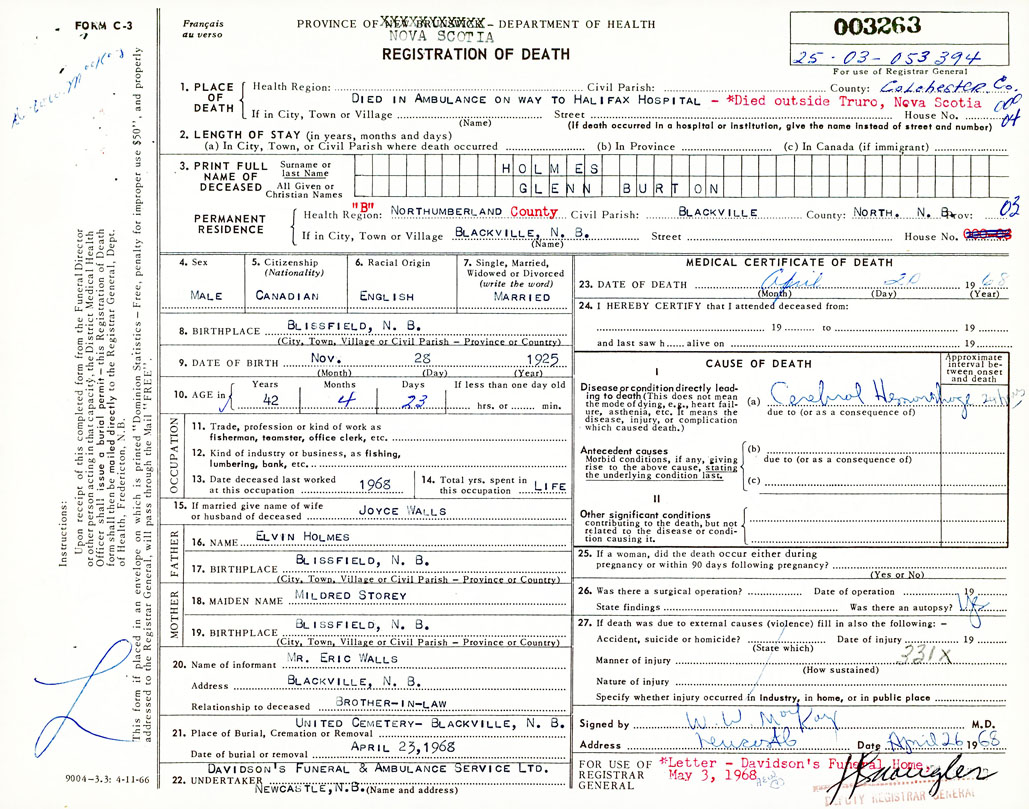 FORM C-3
Français
au verso
PROVINCE OF NEW BRUNSWICK – DEPARTMENT OF HEALTH
NOVA SCOTIA
REGISTRATION OF DEATH
003263
25-03-053394
For use of Registrar General
1. PLACE OF DEATH
Health Region: Civil Parish: County: Colchester Co.
DIED IN AMBULANCE ON WAY TO HALIFAX HOSPITAL – *Died outside Truro, Nova Scotia
If in City, Town or Village (Name) Street House No. 04
(If death occurred in a hospital or institution, give the name instead of street and number)
2. LENGTH OF STAY (in years, months and days)
(a) In City, Town, or Civil Parish where death occurred (b) In Province (c) In Canada (if immigrant)
3. PRINT FULL NAME OF DECEASED
Surname or last Name HOLMES
All Given or Christian Names GLENN BURTON
PERMANENT RESIDENCE
Health Region: "B" NORTHUMBERLAND County Civil Parish: BLACKVILLE County: NORTH. N. B. Prov: 03
If in City, Town or Village BLACKVILLE, N. B. Street House No.
(Name)
4. Sex
MALE
5. Citizenship (Nationality)
CANADIAN
6. Racial Origin
ENGLISH
7. Single, Married, Widowed or Divorced (write the word)
MARRIED
8. BIRTHPLACE BLISSFIELD, N. B.
(City, Town, Village or Civil Parish – Province or Country)
9. DATE OF BIRTH Nov. 28 1925
(Month) (Day) (Year)
10. AGE in
Years Months Days If less than one day old
42 4 23 hrs. or min.
OCCUPATION
11. Trade, profession or kind of work as fisherman, teamster, office clerk, etc.
12. Kind of industry or business, as fishing, lumbering, bank, etc.
13. Date deceased last worked at this occupation 1968
14. Total yrs. spent in this occupation LIFE
15. If married give name of wife or husband of deceased JOYCE WALLS
FATHER
16. NAME ELVIN HOLMES
17. BIRTHPLACE BLISSFIELD, N. B.
(City, Town, Village or Civil Parish – Province or Country)
MOTHER
18. MAIDEN NAME MILDRED STOREY
19. BIRTHPLACE BLISSFIELD, N. B.
(City, Town, Village or Civil Parish – Province or Country)
20. Name of informant MR. ERIC WALLS
Address BLACKVILLE, N. B.
Relationship to deceased BROTHER-IN-LAW
UNITED CEMETERY- BLACKVILLE, N. B.
21. Place of Burial, Cremation or Removal
Date of burial or removal APRIL 23,1968
DAVIDSON'S FUNERAL & AMBULANCE SERVICE LTD.
22. UNDERTAKER
NEWCASTLE,N.B. (Name and address)
MEDICAL CERTIFICATE OF DEATH
23. DATE OF DEATH April 20 1968
(Month) (Day) (Year)
24. I HEREBY CERTIFY that I attended deceased from:
19 to 19
and last saw h alive on 19
CAUSE OF DEATH
Approximate interval between onset and death
I
Disease or condition directly leading to death (This does not mean the mode of dying, e.g., heart failure, asthenia, etc. It means the disease, injury, or complication which caused death.)
(a) Cerebral Hemorrhage 24 hrs
due to (or as a consequence of)
Antecedent causes
Morbid conditions, if any, giving rise to the above cause, stating the underlying condition last.
(b)
due to (or as a consequence of)
(c)
II
Other significant conditions contributing to the death, but not related to the disease or condition causing it.
25. If a woman, did the death occur either during pregnancy or within 90 days following pregnancy?
(Yes or No)
26. Was there a surgical operation? Date of operation 19
State findings Was there an autopsy?
27. If death was due to external causes (violence) fill in also the following: –
Accident, suicide or homicide? Date of injury 19
(State which)
331X
Manner of injury
(How sustained)
Nature of injury
Specify whether injury occurred in industry, in home, or in public place
Signed by W. W. MacKay M.D.
Address Newcastle Date April 26 1968
FOR USE OF REGISTRAR GENERAL
*Letter – Davidson's Funeral Home.
May 3, 1968
DEPUTY REGISTRAR GENERAL
9004-3.3: 4-11-66
Instructions:
Upon receipt of this completed form from the Funeral Director
or other person acting in that capacity, the District Medical Health
Officer shall issue a burial permit – this Registration of Death
form shall then be mailed directly to the Registrar General, Dept.
of Health, Fredericton, N.B.
This form if placed in an envelope on which is printed "Dominion Statistics – Free, penalty for improper use $50", and properly
addressed to the Registrar General, will pass through the Mail "FREE".